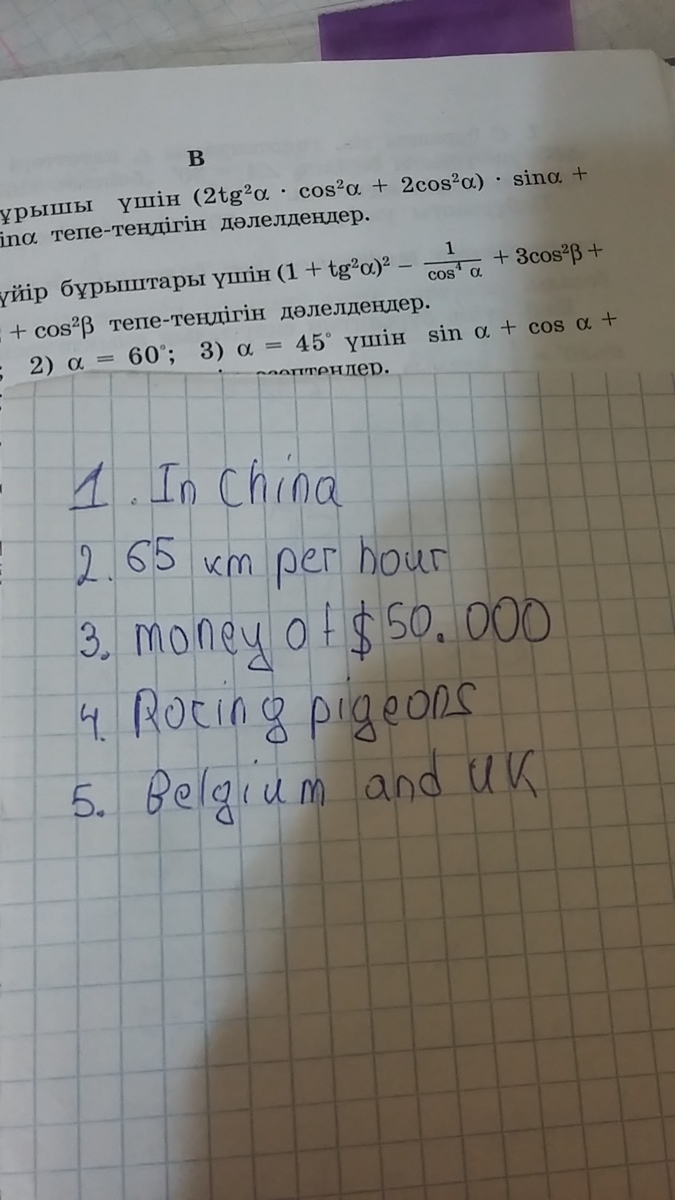 В
ұрышы үшін (2tg²α · cos²α + 2cos²α) · sinα +
inα тепе-теңдігін дәлелдеңдер.
үйір бұрыштары үшін (1 + tg²α)² − 1/cos⁴ α + 3cos²β +
+ cos²β тепе-теңдігін дәлелдеңдер.
; 2) α = 60°; 3) α = 45° үшін sin α + cos α +
1. In China
2. 65 km per hour
3. money of $50.000
4. Rocing pigeons
5. Belgium and UK